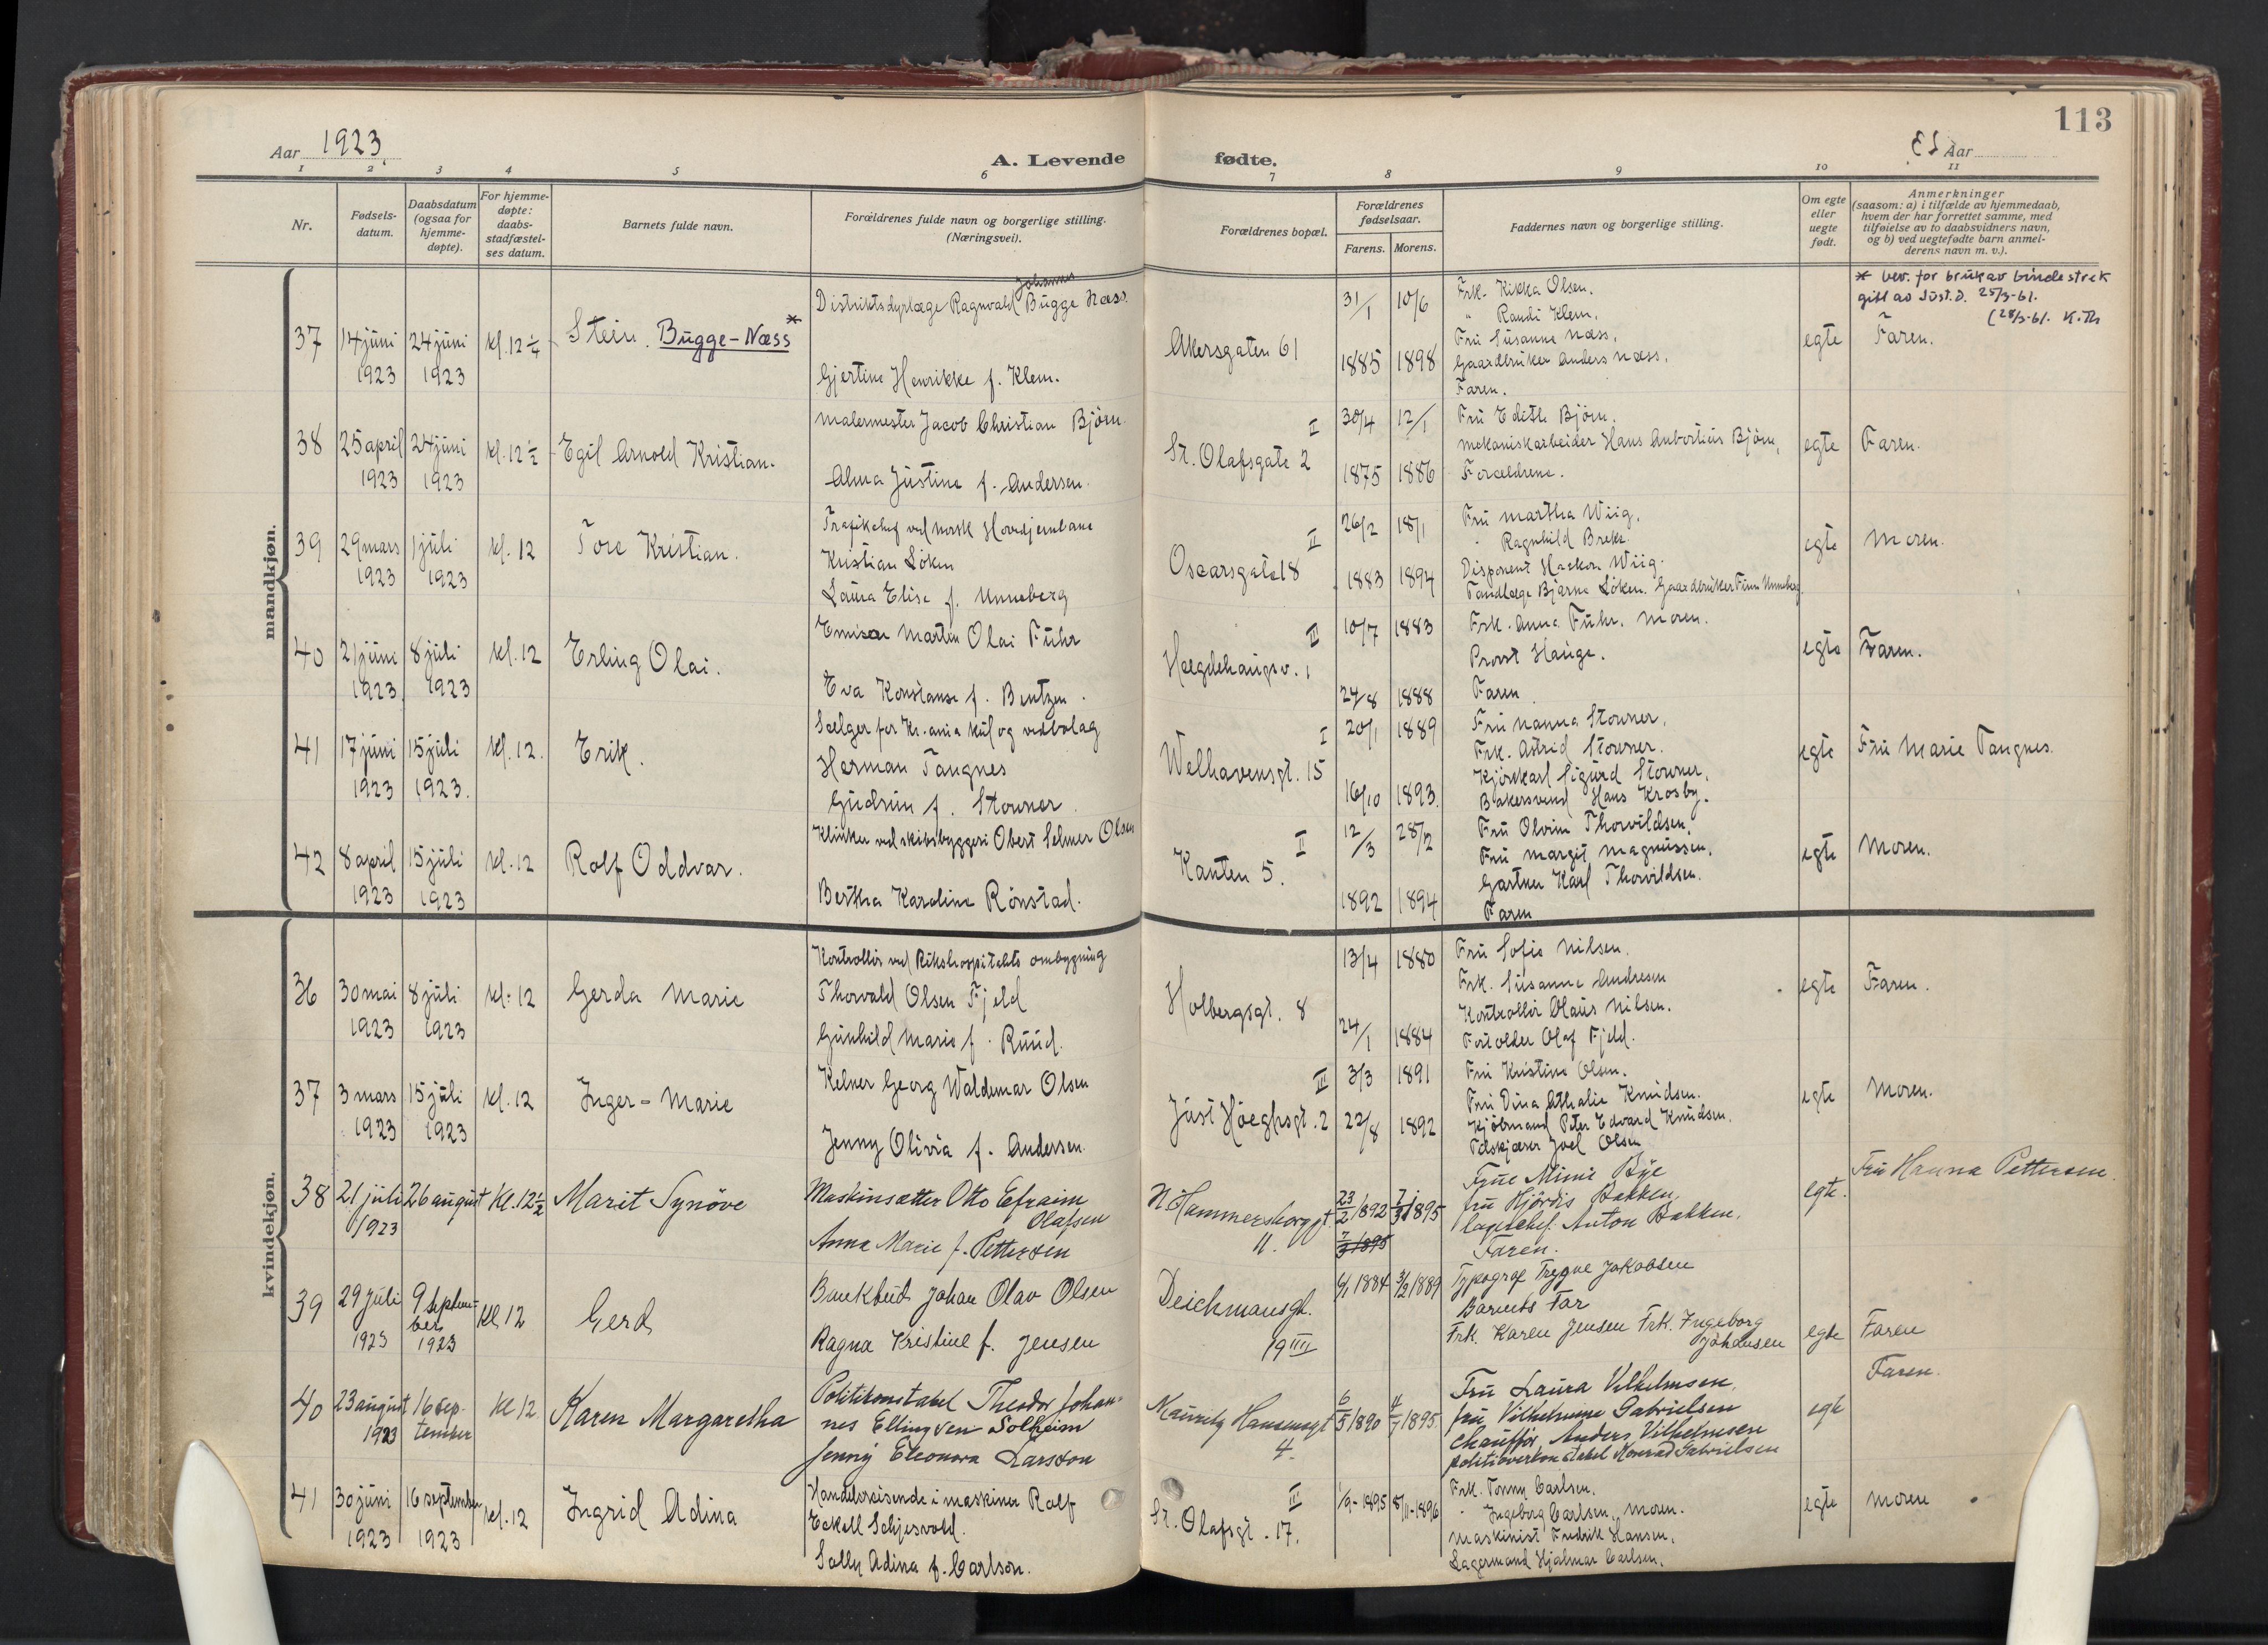 113
Aar 1923
A. Levende fødte.
Aar
1 2 3 4 5 6 7 8 9 10 11
Nr.
Fødsels-
datum.
Daabsdatum
(ogsaa for
hjemme-
døpte).
For hjemme-
døpte:
daabs-
stadfæstel-
ses datum.
Barnets fulde navn.
Forældrenes fulde navn og borgerlige stilling.
(Næringsvei).
Forældrenes bopæl.
Forældrenes
fødselsaar.
Farens. Morens.
Faddernes navn og borgerlige stilling.
Om egte
eller
uegte
født.
Anmerkninger
(saasom: a) i tilfælde av hjemmedaab,
hvem der har forrettet samme, med
tilføielse av to daabsvidners navn,
og b) ved uegtefødte barn anmel-
derens navn m. v.).
mandkjøn.
37
14 juni
1923
24 juni
1923
kl. 12 1/4
Stein. Bugge-Næss *
Johannes
Distriktsdyrlæge Ragnvald Bugge Næss.
Gjertine Henrikke f. Klem.
Akersgaten 61
31/1 10/6
1885 1898
Frk. Kikka Olsen.
" Randi Klem.
Fru Susanne Næss.
Gaardbruker Anders Næss.
Faren.
egte
* bev. for bruk av bindestrek
gitt av Just.D. 25/3-61.
(28/3-61. K.Th
Faren.
38
25 april
1923
24 juni
1923
kl. 12 1/2
Egil Arnold Kristian.
Malermester Jacob Christian Bjørn.
Alma Justine f. Andersen.
II
St. Olafsgate 2
30/4 12/1
1875 1886
Fru Edith Bjørn.
mekaniskarbeider Hans Anbertius Bjørn,
Forældrene.
egte
Faren.
39
29 mars
1923
1 juli
1923
kl. 12
Tore Kristian.
Trafikchef ved Norsk Hovedjernbane
Kristian Løken
Laura Elise f. Unneberg
II
Oscarsgate 18
26/2 18/1
1883 1894
Fru Martha Wiig.
" Ragnhild Brekke.
Disponent Haakon Wiig.
Tandlæge Bjarne Løken. Gaardbruker Finn Unneberg.
egte
Moren.
40
21 juni
1923
8 juli
1923
kl. 12
Erling Olai.
Emisær Martin Olai Fuhr
Eva Konstanse f. Bentzen.
III
Hægdehaugsv. 1
10/7 1883
24/8 1888
Frk. Anna Fuhr. Moren.
Provst Hauge.
Faren
egte
Faren.
41
17 juni
1923
15 juli
1923.
kl. 12.
Erik.
Sælger for Kr.ania kul og vedbolag
Herman Tangnes
Gudrun f. Stovner.
I
Welhavensgt. 15
20/1 1889
16/10 1893.
Fru Nanna Stovner.
Frk. Astrid Stovner.
Kjørekarl Sigurd Stovner.
Bakersvend Hans Krosby.
egte
Fru Marie Tangnes.
42
8 april
1923
15 juli
1923
kl. 12
Rolf Oddvar.
Klinker ved skibsbyggeri Obert Selmer Olsen
Bertha Karoline Rønstad.
II
Kanten 5.
12/3 28/2
1892 1894
Fru Olvine Thorvildsen.
Fru Margit Magnussen.
Gartner Karl Thorvildsen.
Faren
egte
Moren.
kvindekjøn.
36
30 mai
1923
8 juli
1923
kl. 12
Gerda Marie
Kontrollør ved Rikshospitalets ombygning
Thorvald Olsen Fjeld
Gunhild Marie f. Ruud.
Holbergsgt. 8
13/4 1880
24/1 1884
Fru Sofie Nilsen.
Frk. Susanne Andresen
Kontrollør Olaus Nilsen.
Forvolder Olaf Fjeld.
egte
Faren.
37
3 mars
1923
15 juli
1923
kl. 12
Inger-Marie
Kelner Georg Waldemar Olsen
Jenny Olivia f. Andersen.
III
Just Høeghsgt. 2
3/3 1891
22/8 1892
Fru Kristine Olsen.
Fru Dina Athalie Knudsen.
Kjøbmand Peter Edvard Knudsen.
Tilskjærer Joel Olsen
egte
Moren.
38
21 juli
1923
26 august
Kl. 12 1/2
Marit Synöve
Maskinsætter Otto Efraim
Olafsen
Anna Marie f. Pettersen
N. Hammersborggt
11.
23/2 1892 7/3 1895
7/3 1895
Frue Mimi Bye
fru Hjördis Bakken,
lagerchef. Anton Bakken,
Faren.
egte.
Fru Hanna Pettersen.
39
29 juli
1923
9 septem-
ber
1923
Kl 12
Gerd
Bankbud Johan Olav Olsen
Ragna Kristine f. Jensen
Deichmansgt.
19 III
6/1 1884 3/2 1889
Typograf Trygve Jakobsen
Barnets Far
Frk. Karen Jensen Frk. Ingeborg
Johansen
egte
Faren
40
23 august
1923
16 sep-
tember
Kl 12
Karen Margaretha
Politikonstabel Theodor Johan-
nes Ellingsen Solheim
Jenny Eleonora Larsson
Mauritz Hansensgt
4.
6/5 1890 4/7 1895
Fru Laura Vilhelmsen,
fru Vilhelmine Gabrielsen
Chauffør Anders Vilhelmsen
politioverkonstabel Konrad Gabrielsen
egte
Faren.
41
30 juni
1923
16 september
1923
kl. 12
Ingrid Adina
Handelsreisende i maskiner Rolf
Eckell Schjesvold.
Sally Adina f. Carlson.
III
St. Olafsgt. 17.
1/9-1895 8/11-1896
Frk. Tonny Carlsen.
" Ingeborg Carlsen, Moren.
Maskinist Fredrik Hansen.
Lagermand Hjalmar Carlsen.
egte
Moren